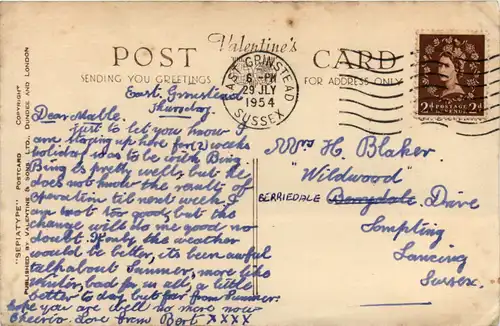 Valentine's
POST CARD
SENDING YOU GREETINGS
FOR ADDRESS ONLY
EAST GRINSTEAD
6 - PM
29 JLY
1954
SUSSEX
2d POSTAGE 2d
East Grinstead
Thursday
Dear Mable.
Just to let you know I
am staying up here for (2) weeks
holiday was to be with Bing
Bing is pretty well, but he
does not know the result of
operation til next week. I
am not too good but the
change will do me good no
doubt. If only the weather
would be better, its been awful
talk about Summer, more like
winter, bad for us all, a little
better to day but far from Summer.
hope you are well no more now
Cheerio. Love from Bert XXXX
Mrs H. Blaker.
"Wildwood"
BERRIEDALE Berrydale Drive
Sompting
Lancing
Sussex.
"SEPIATYPE" POSTCARD COPYRIGHT
PUBLISHED BY VALENTINE & SONS LTD., DUNDEE AND LONDON